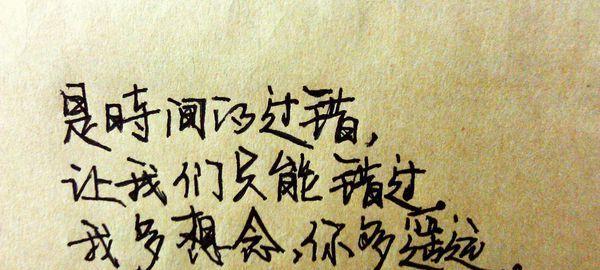 是時间的过错,
让我们只能错过,
我多想念,你多遥远,